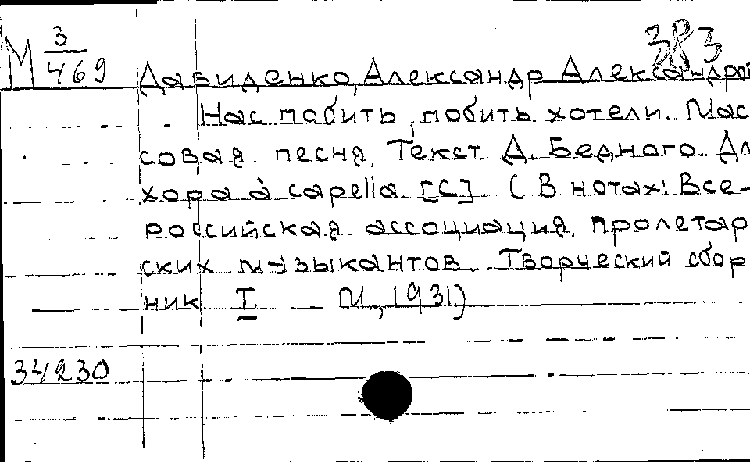 383
М 3/469
Давиденко, Александр Александров
Нас побить, побить хотели. Мас
совая песня. Текст Д. Бедного. Дл
хора à capella [C] (В нотах: Все-
российская ассоциация пролетар
ских музыкантов. Творческий сбор
ник I М., 1931)
34230